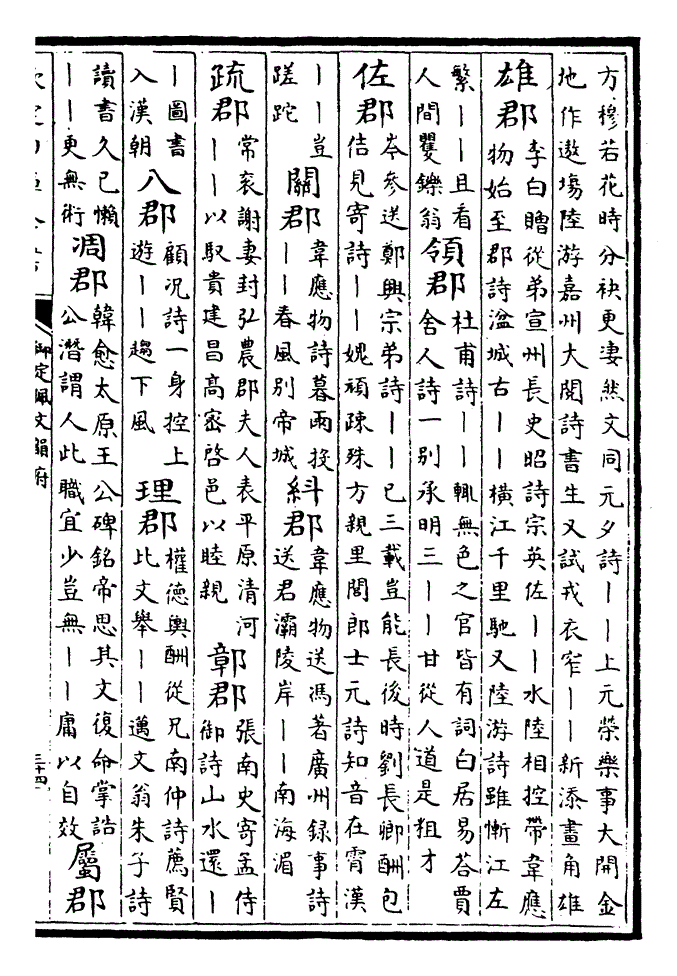 方穆若花時分袂更淒然文同元夕詩丨丨上元榮樂事大開金
地作遨塲陸游嘉州大閱詩書生又試戎衣窄丨丨新添畫角雄
雄郡
李白贈從弟宣州長史昭詩宗英佐丨丨水陸相控帶韋應
物始至郡詩湓城古丨丨橫江千里馳又陸游詩雖慚江左
繁丨丨且看
人間矍鑠翁
領郡
杜甫詩丨丨輒無色之官皆有詞白居易荅賈
舍人詩一別承明三丨丨甘從人道是粗才
佐郡
岑參送鄭興宗弟詩丨丨已三載豈能長後時劉長卿酬包
佶見寄詩丨丨媿頑疎殊方親里閭郎士元詩知音在霄漢
丨丨豈
蹉跎
關郡
韋應物詩暮雨投
丨丨春風別帝城
斜郡
韋應物送馮著廣州録事詩
送君灞陵岸丨丨南海湄
疏郡
常衮謝妻封弘農郡夫人表平原清河
丨丨以馭貴建昌高密啓邑以睦親
鄣郡
張南史寄孟侍
御詩山水還丨
丨圖書
入漢朝
八郡
顧况詩一身控上
遊丨丨趨下風
理郡
權德輿酬從兄南仲詩薦賢
比文舉丨丨邁文翁朱子詩
讀書久已懶
丨丨更無術
凋郡
韓愈太原王公碑銘帝思其文復命掌誥
公潛謂人此職宜少豈無丨丨庸以自效
屬郡
御定佩文韻府
三十四